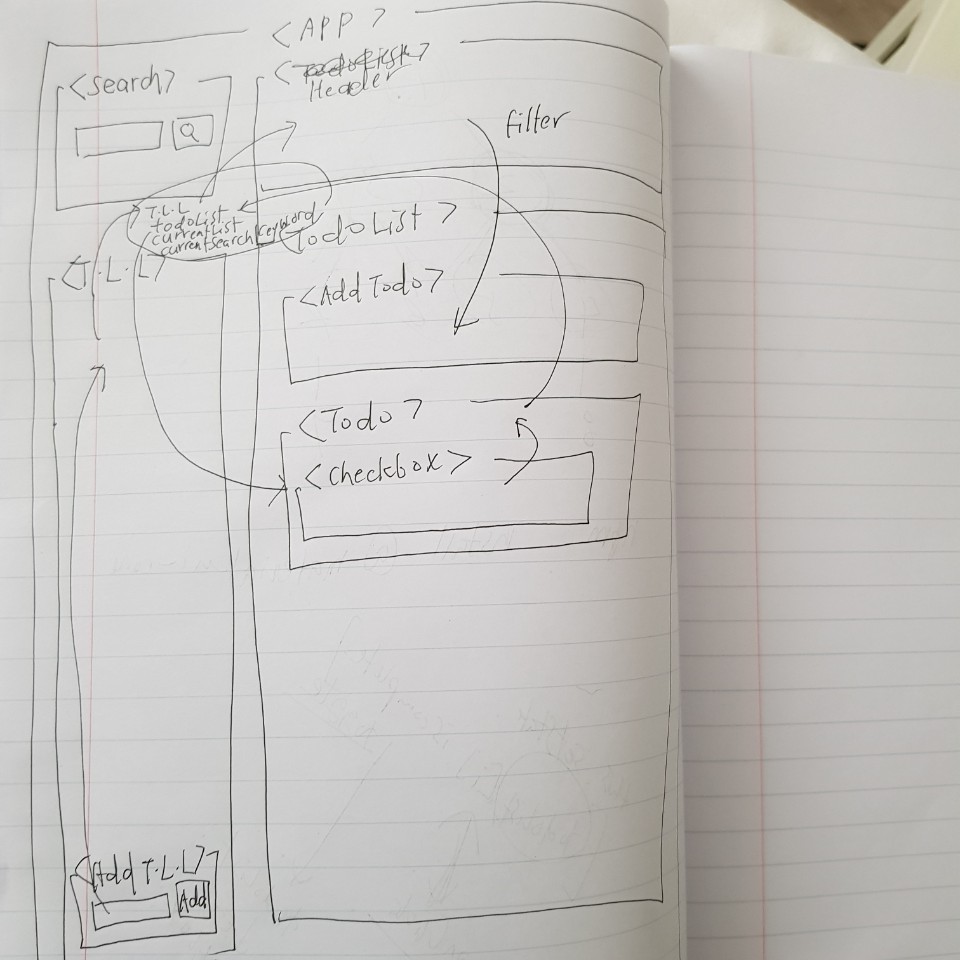 <APP>
<Search>
<TodoList>
Header
filter
T.L.L
todoList
currentList
currentSearch Keyword
<TodoList>
<T.L.L>
<Add Todo>
<Todo>
<checkbox>
<Add T.L.L>
Add